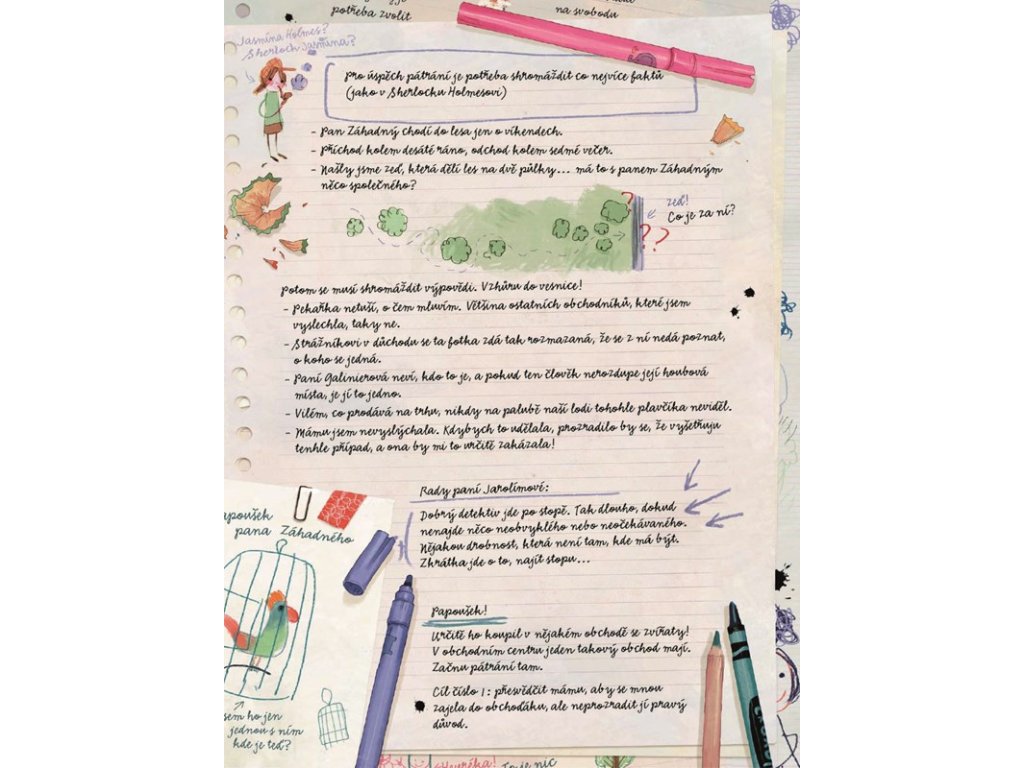 potřeba zvolit
na svobodu
Jasmína Holmes?
Sherlock Jasmína?
Pro úspěch pátrání je potřeba shromáždit co nejvíce faktů
(jako v Sherlocku Holmesovi)
- Pan Záhadný chodí do lesa jen o víkendech.
- Příchod kolem desáté ráno, odchod kolem sedmé večer.
- Našly jsme zeď, která dělí les na dvě půlky... má to s panem Záhadným
něco společného?
?
zeď!
Co je za ní?
??
Potom se musí shromáždit výpovědi. Vzhůru do vesnice!
- Pekařka netuší, o čem mluvím. Většina ostatních obchodníků, které jsem
vyslechla, taky ne.
- Strážníkovi v důchodu se ta fotka zdá tak rozmazaná, že se z ní nedá poznat,
o koho se jedná.
- Paní Galinierová neví, kdo to je, a pokud ten člověk nerozdupe její houbová
místa, je jí to jedno.
- Vilém, co prodává na trhu, nikdy na palubě naší lodi tohohle plavčíka neviděl.
- Mámu jsem nevyslýchala. Kdybych to udělala, prozradilo by se, že vyšetřuju
tenhle případ, a ona by mi to určitě zakázala!
Rady paní Jarolímové:
Dobrý detektiv jde po stopě. Tak dlouho, dokud
nenajde něco neobvyklého nebo neočekávaného.
Nějakou drobnost, která není tam, kde má být.
Zkrátka jde o to, najít stopu...
apoušek
pana Záhadného
sem ho jen
jednou s ním
kde je teď?
Papoušek!
Určitě ho koupil v nějakém obchodě se zvířaty!
V obchodním centru jeden takový obchod mají.
Začnu pátrání tam.
Cíl číslo 1: přesvědčit mámu, aby se mnou
zajela do obchoďáku, ale neprozradit jí pravý
důvod.
Heuréka!
To je nic